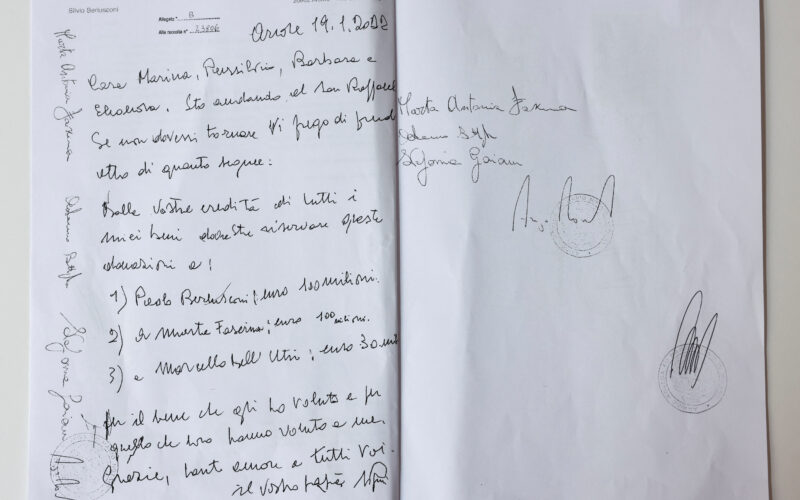 Silvio Berlusconi
Allegato " B
Alla raccolta n° 23806
Arcore 19.1.2022
Cara Marina, Piersilvio, Barbara e
Eleonora. Sto andando al San Raffaele
Se non dovessi tornare Vi prego di prend
atto di quanto segue:
Dalle vostre eredità di tutti i
miei beni dovreste riservare queste
donazioni a:
1) Paolo Berlusconi; euro 100 milioni.
2) a Marta Fascina; euro 100 milioni.
3) a Marcello Dell'Utri; euro 30 mil
per il bene che gli ho voluto e per
quello che loro hanno voluto a me.
Grazie, tanto amore a tutti voi.
il vostro papà
Marta Antonia Fascina
Stefania Gaiani
Marta Antonia Fascina
Stefania Gaiani